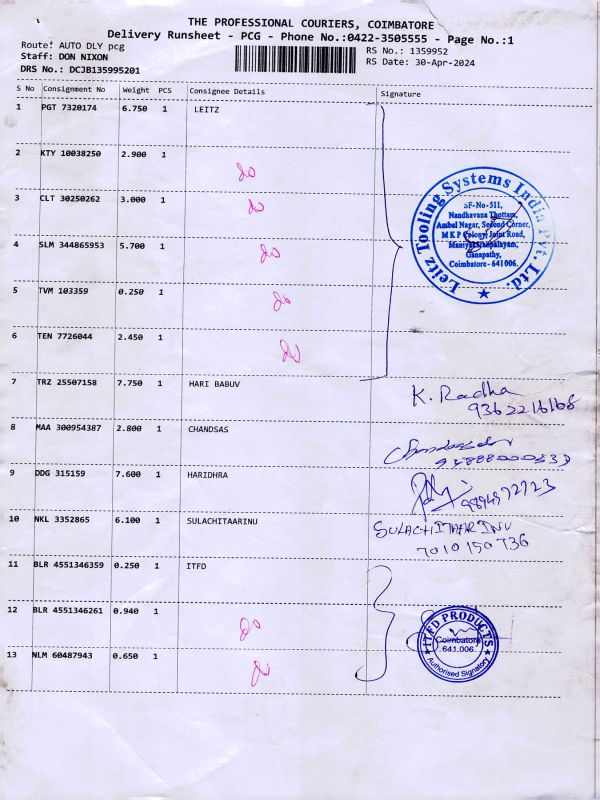 THE PROFESSIONAL COURIERS, COIMBATORE
Delivery Runsheet - PCG - Phone No.:0422-3505555 - Page No.:1
Route! AUTO DLY pcg
Staff: DON NIXON
DRS No.: DCJB135995201
RS No.: 1359952
RS Date: 30-Apr-2024
S No Consignment No Weight PCS Consignee Details Signature
1 PGT 7320174 6.750 1 LEITZ
2 KTY 10038250 2.900 1 do
3 CLT 30250262 3.000 1 do
4 SLM 344865953 5.700 1 do
5 TVM 103359 0.250 1 do
6 TEN 7726044 2.450 1 do
Leitz Tooling Systems India Pvt. Ltd.
SF-No-511,
Nandhavana Thottam,
Ambal Nagar, Second Corner,
MKP Colony, Joint Road,
Maniyakaranpalayam,
Ganapathy,
Coimbatore - 641006.
7 TRZ 25507158 7.750 1 HARI BABUV K. Radha
9362216168
8 MAA 300954387 2.800 1 CHANDSAS
9 DDG 315159 7.600 1 HARIDHRA
10 NKL 3352865 6.100 1 SULACHITAARINU SULACHITAARINU
7010150736
11 BLR 4551346359 0.250 1 ITFD
12 BLR 4551346261 0.940 1 do
13 NLM 60487943 0.650 1 do
ITFD PRODUCTS
Coimbatore
641.006.
Authorised Signatory